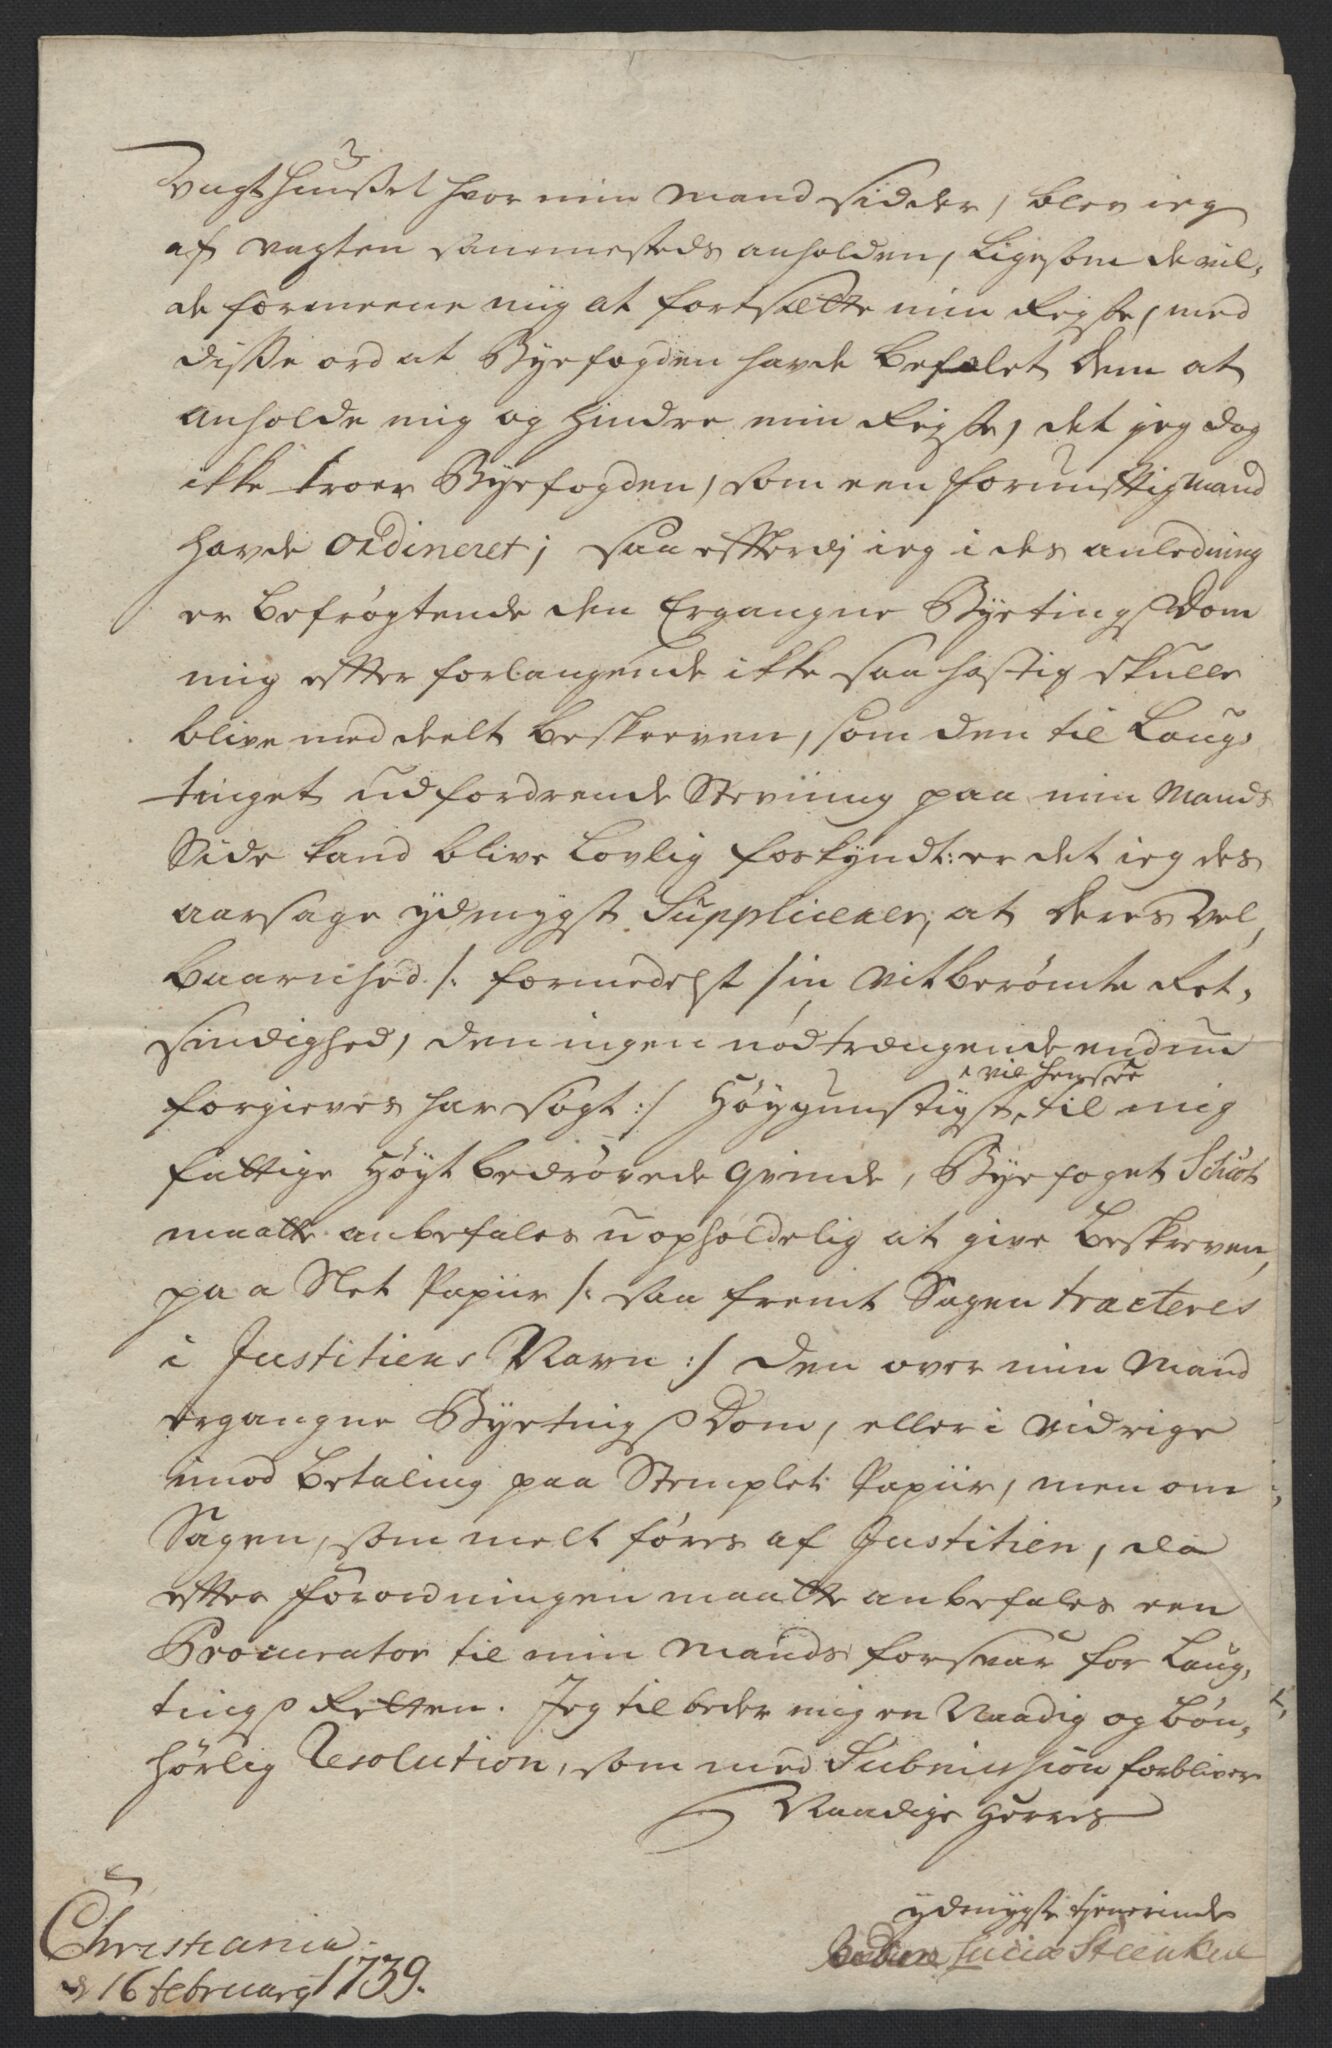 Vagthuusset hvor min Mand sidder, blev ieg
af vagten sammesteds anholden, Ligesom de vil-
de formeene miig at fortsætte min Reyse, med
disse ord at Byefogden havde befalet dem at
anholde mig og hindre min Reyse, det jeg dog
ikke troer Byefogden, som een fornunftig Mand
havde ordineret; saa efterdj ieg i des anledning
er befrögtende den Ergangne Byetings Dom
mig efter forlangende ikke saa hastig skulle
blive meddeelt beskreven, som den til Laug-
tinget udfordrende Stevning paa min Mands
Side kand blive Lovlig forkyndt: er det ieg des
aarsage ydmygst Supplicerer, at Deres Vel,
baarnhed /: formedelst sin vitberömte Ret-
sindighed, den ingen nödtrængende endnu
forgieves har sögt :/ Höygunstigst til mig
vil hensee
fattige Höytbedrövede Qvinde, Byefoget Schiöt
maatte anbefales uopholdelig at give beskreven,
paa Slet Papiir /: saa fremt Sagen tracteres
i Justitiens Navn :/ den over min Mand
ergangne Byetings Dom, eller i vidrige
imod betaling paa Stemplet Papiir, men om
Sagen, som melt föres af Justitien, da
efter Forordningen maatte anbefales een
Procurator til min Mands forsvar for Laug-
tings Retten. Jeg tilbeder mig en Naadig og bön-
hörlig Resolution, som med Submission forbliver
Naadige Herres
ydmygste tjenerinde
Lucia Steenkul
Christiania
d 16 february 1739.